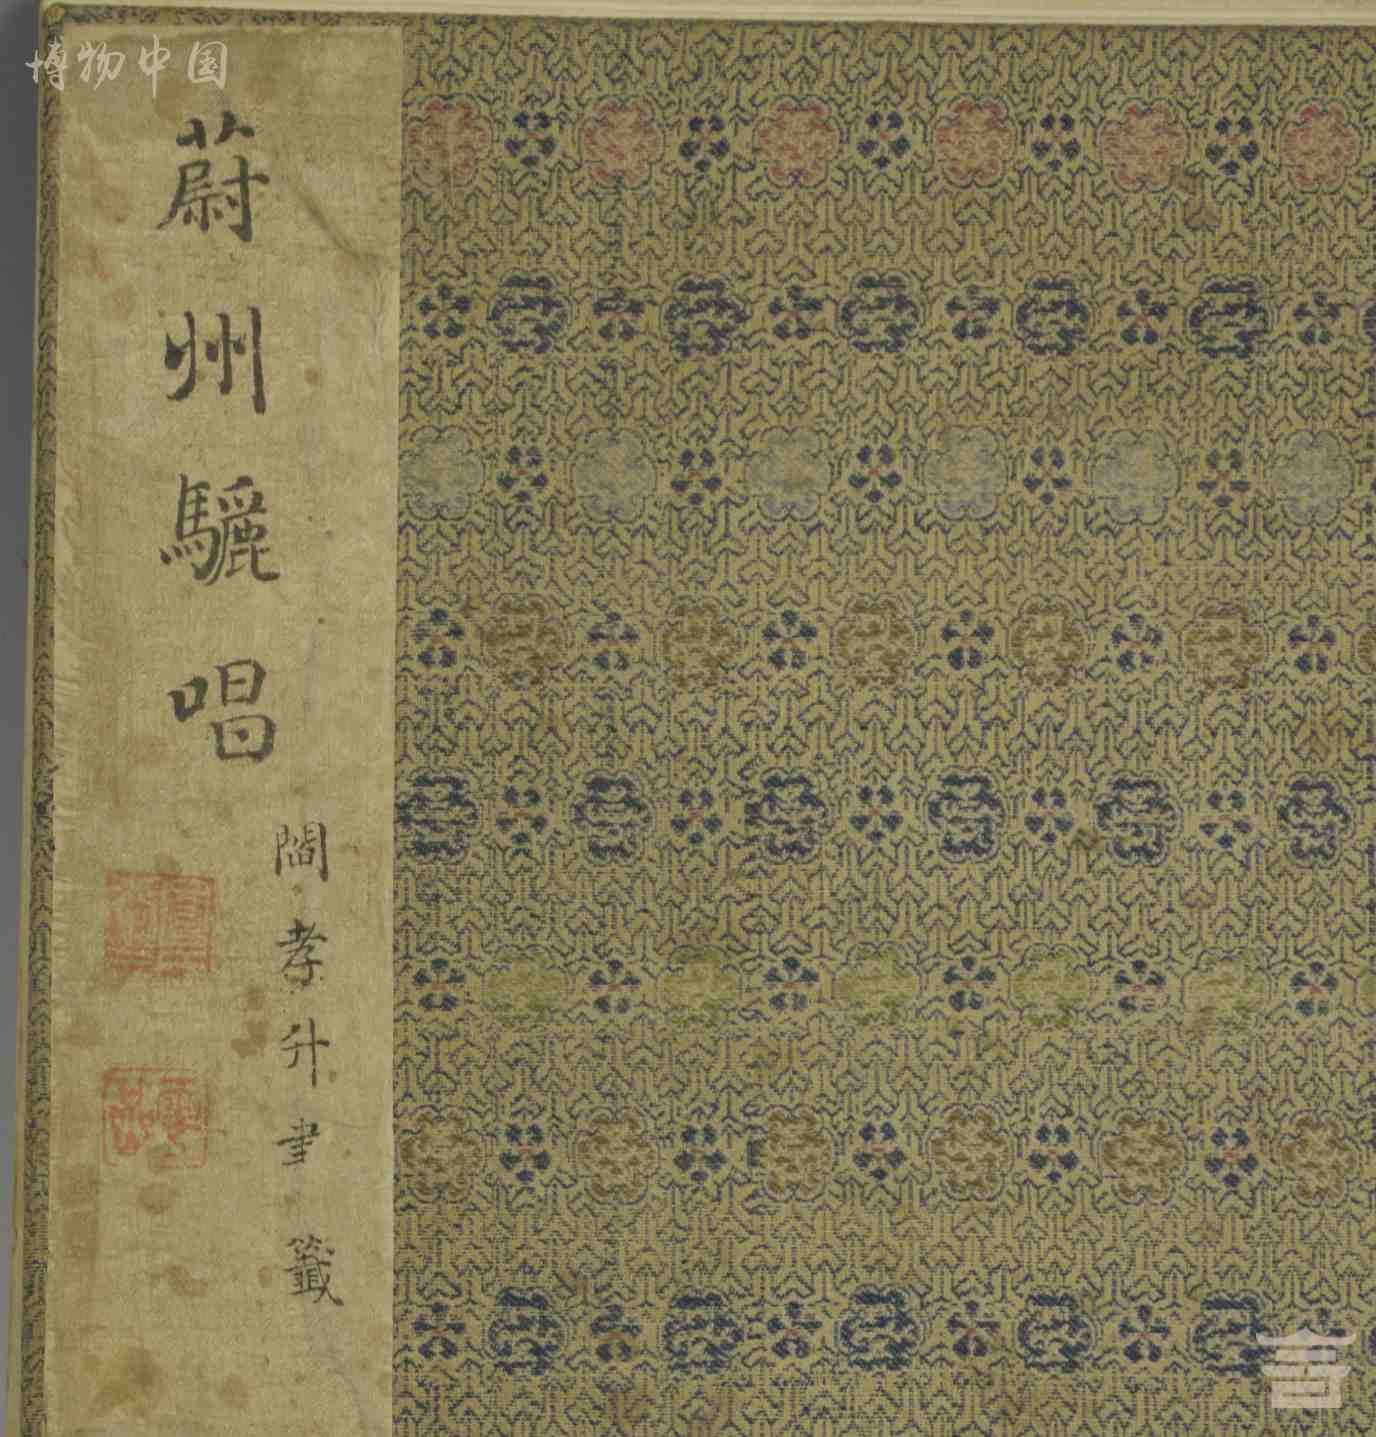 博物中国
蔚州驪唱
閻孝升聿籤